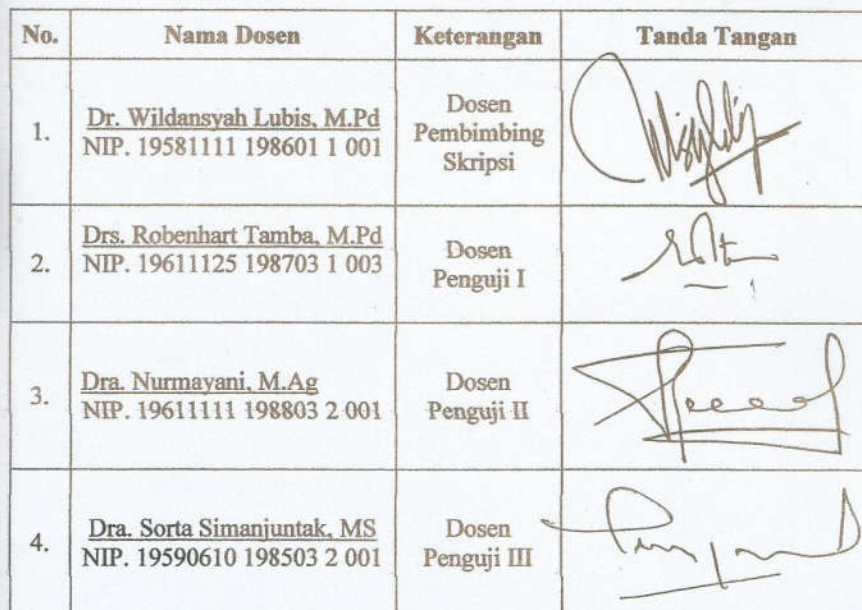 No. Nama Dosen Keterangan Tanda Tangan
1. Dr. Wildansyah Lubis, M.Pd
NIP. 19581111 198601 1 001
Dosen
Pembimbing
Skripsi
2. Drs. Robenhart Tamba, M.Pd
NIP. 19611125 198703 1 003
Dosen
Penguji I
3. Dra. Nurmayani, M.Ag
NIP. 19611111 198803 2 001
Dosen
Penguji II
4. Dra. Sorta Simanjuntak, MS
NIP. 19590610 198503 2 001
Dosen
Penguji III